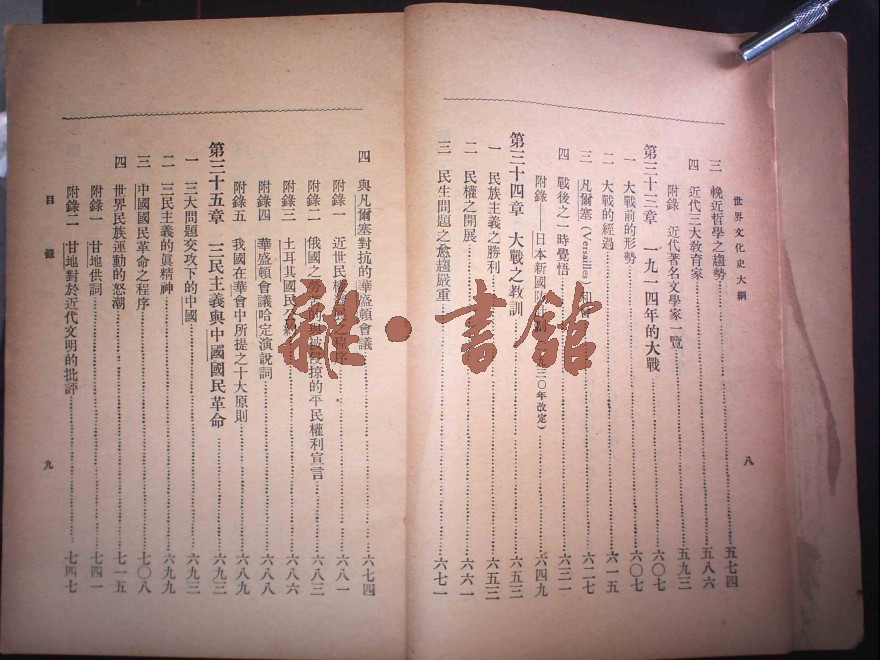 世界文化史大綱
八
三 晚近哲學之趨勢 五七四
四 近代三大教育家 五八六
附錄 近代著名文學家一覽 五九三
第三十三章 一九一四年的大戰 六〇七
一 大戰前的形勢 六〇七
二 大戰的經過 六一五
三 凡爾塞(Versailles 和 六二七
四 戰後之一時覺悟 六三一
附錄——日本新國防 三〇年改定) 六四九
第三十四章 大戰之教訓 六五三
一 民族主義之勝利 六五三
二 民權之開展 六六一
三 民生問題之愈趨嚴重 六七一
四 與凡爾塞對抗的華盛頓會議 六七四
附錄一 近世民權 之程序 六八一
附錄二 俄國之勞 的與被侵掠的平民權利宣言 六八三
附錄三 土耳其國民公約 六八六
附錄四 華盛頓會議哈定演說詞 六八八
附錄五 我國在華會中所提之十大原則 六八九
第三十五章 三民主義與中國國民革命 六九三
一 三大問題交攻下的中國 六九三
二 三民主義的眞精神 六九九
三 中國國民革命之程序 七〇八
四 世界民族運動的怒潮 七一五
附錄一 甘地供詞 七四一
附錄二 甘地對於近代文明的批評 七四七
目錄
九
雜·書館